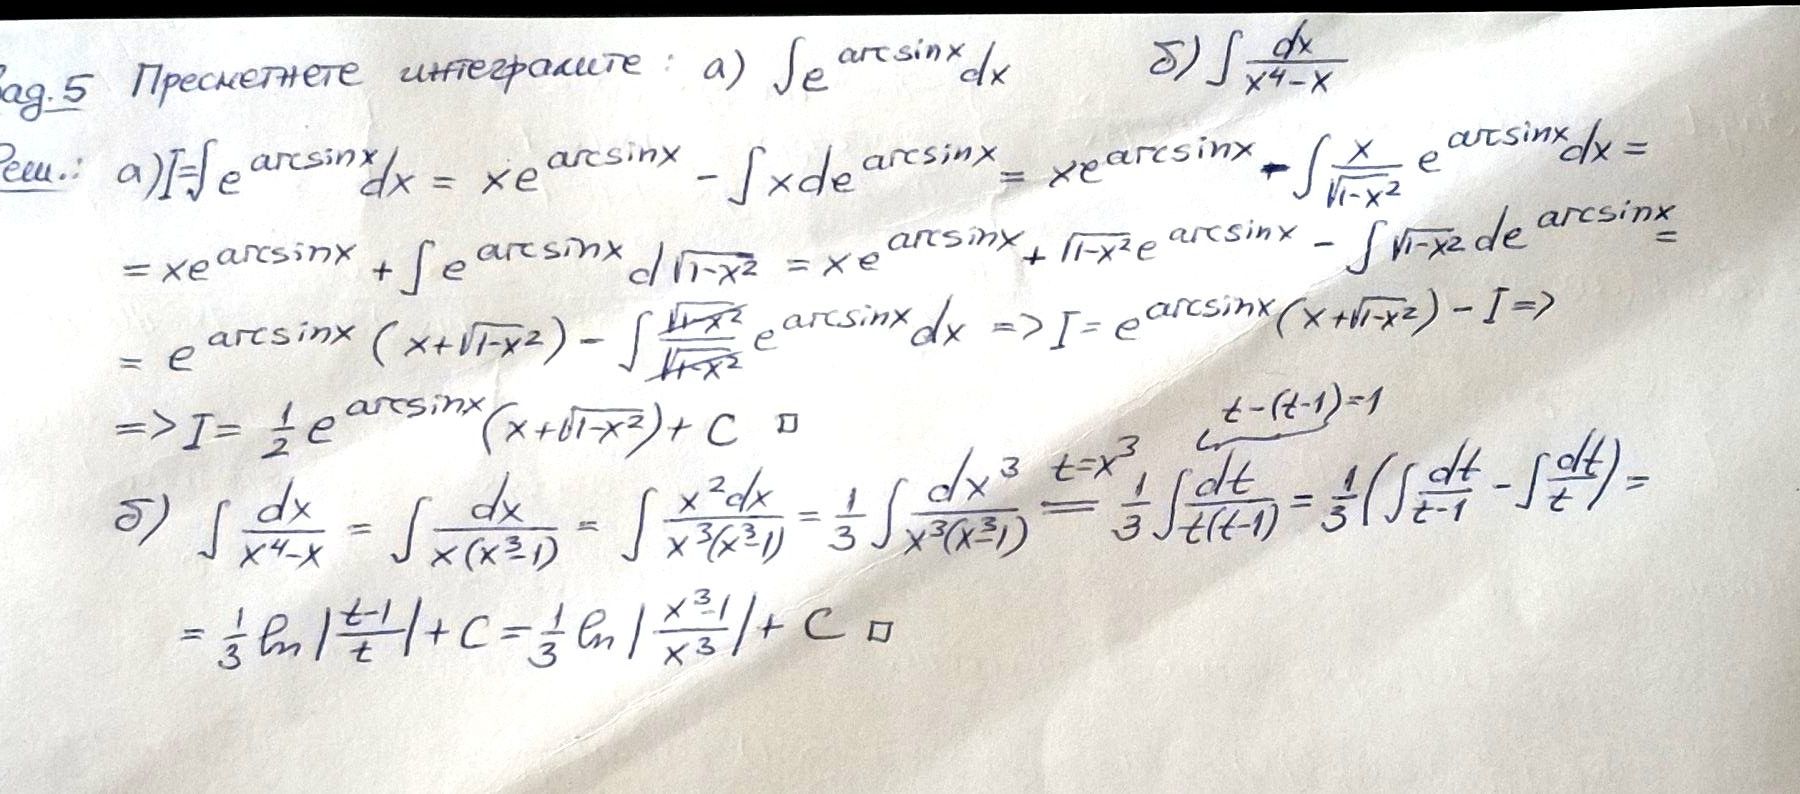 Зад.5 Пресметнете интегралите: а) ∫e^{arcsinx}dx б) ∫\frac{dx}{x^4-x}
Реш.: а) I=∫e^{arcsinx}dx = xe^{arcsinx} - ∫xde^{arcsinx} = xe^{arcsinx} - ∫\frac{x}{\sqrt{1-x^2}} e^{arcsinx}dx =
= xe^{arcsinx} + ∫e^{arcsinx}d\sqrt{1-x^2} = xe^{arcsinx} + \sqrt{1-x^2}e^{arcsinx} - ∫\sqrt{1-x^2}de^{arcsinx} =
= e^{arcsinx}(x+\sqrt{1-x^2}) - ∫\frac{\sqrt{1-x^2}}{\sqrt{1-x^2}}e^{arcsinx}dx => I = e^{arcsinx}(x+\sqrt{1-x^2}) - I =>
=> I = \frac{1}{2}e^{arcsinx}(x+\sqrt{1-x^2}) + C □
t-(t-1)=1
б) ∫\frac{dx}{x^4-x} = ∫\frac{dx}{x(x^3-1)} = ∫\frac{x^2dx}{x^3(x^3-1)} = \frac{1}{3}∫\frac{dx^3}{x^3(x^3-1)} \overset{t=x^3}{=} \frac{1}{3}∫\frac{dt}{t(t-1)} = \frac{1}{3}(∫\frac{dt}{t-1} - ∫\frac{dt}{t}) =
= \frac{1}{3}ln|\frac{t-1}{t}| + C = \frac{1}{3}ln|\frac{x^3-1}{x^3}| + C □